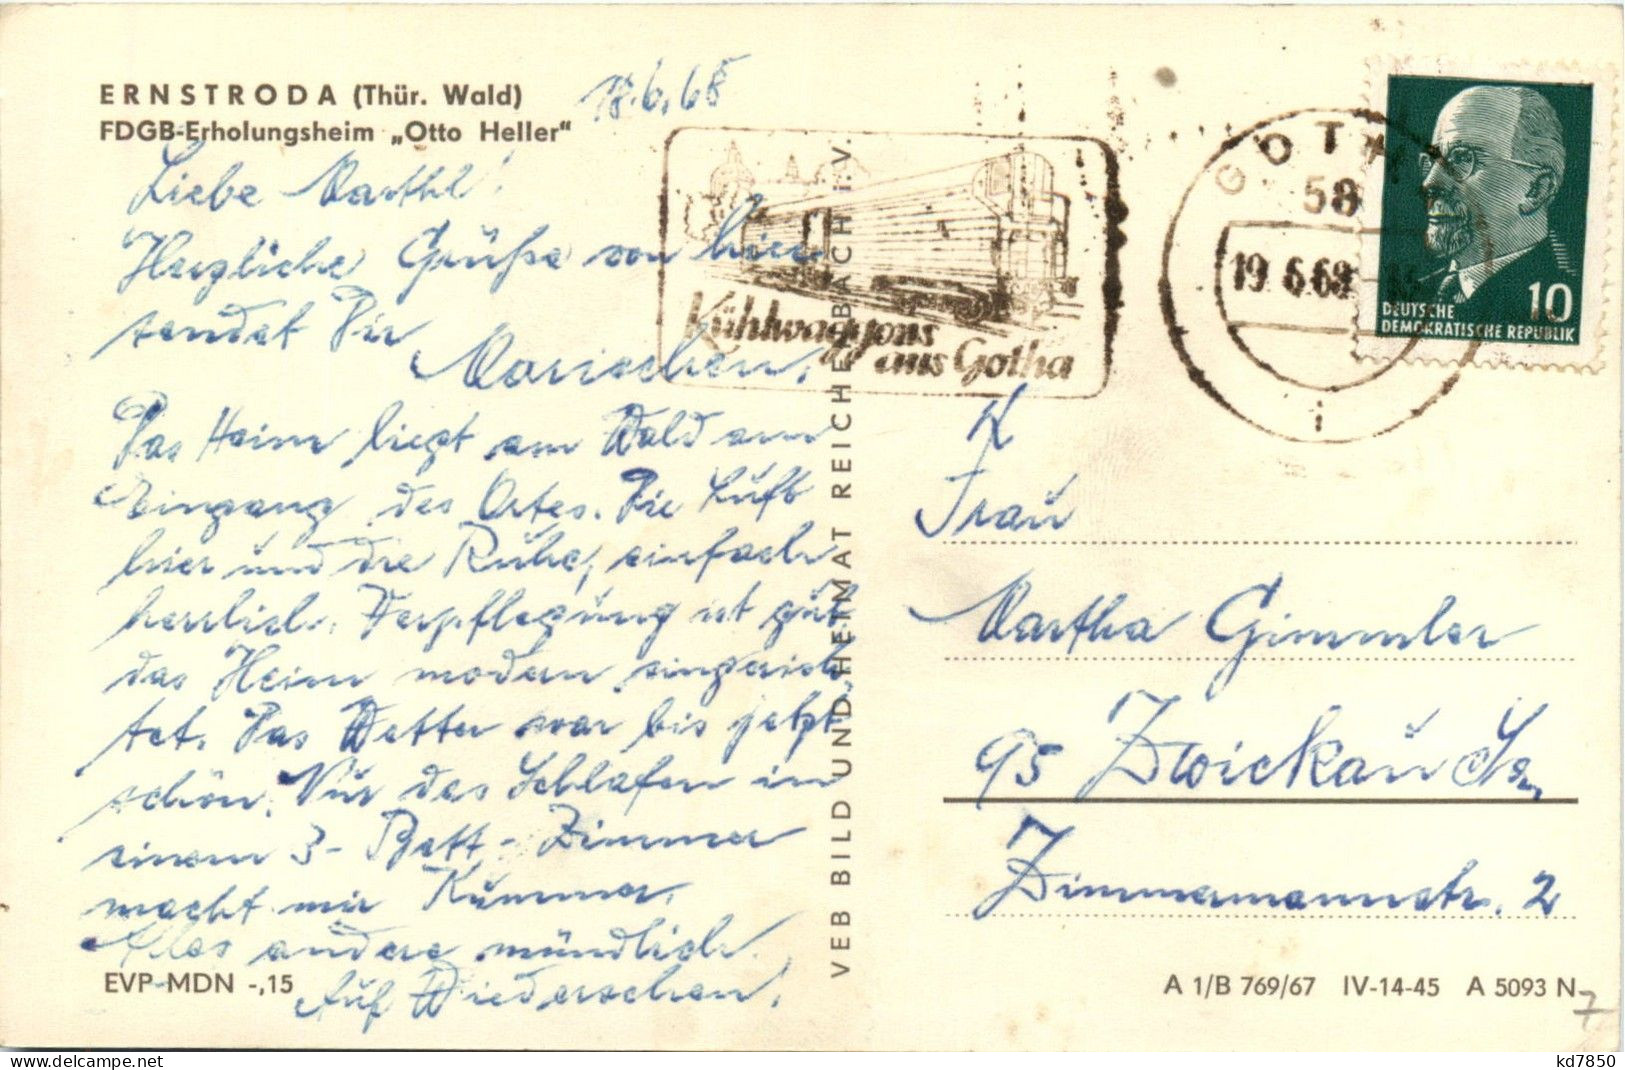 ERNSTRODA (Thür. Wald)
FDGB-Erholungsheim „Otto Heller"
18.6.68
Liebe Marthl!
Herzliche Grüße von hier
sendet Dir
Mariechen.
Das Heim liegt am Wald am
Eingang des Ortes. Die Luft
hier und die Ruhe, einfach
herrlich. Verpflegung ist gut
das Heim modern eingerich-
tet. Das Wetter war bis jetzt
schön. Nur das Schlafen in
einem 3-Bett-Zimmer
macht mir Kummer.
Alles andere mündlich.
Auf Wiedersehen!
EVP-MDN -,15
VEB BILD UND HEIMAT REICHENBACH i. V.
Kühlwaggons
aus Gotha
GOTHA
58
19.6.68
i
DEUTSCHE
DEMOKRATISCHE REPUBLIK
10
Frau
Martha Gimmler
95 Zwickau Sa.
Zimmermannstr. 2
A 1/B 769/67 IV-14-45 A 5093 N
7
kd7850